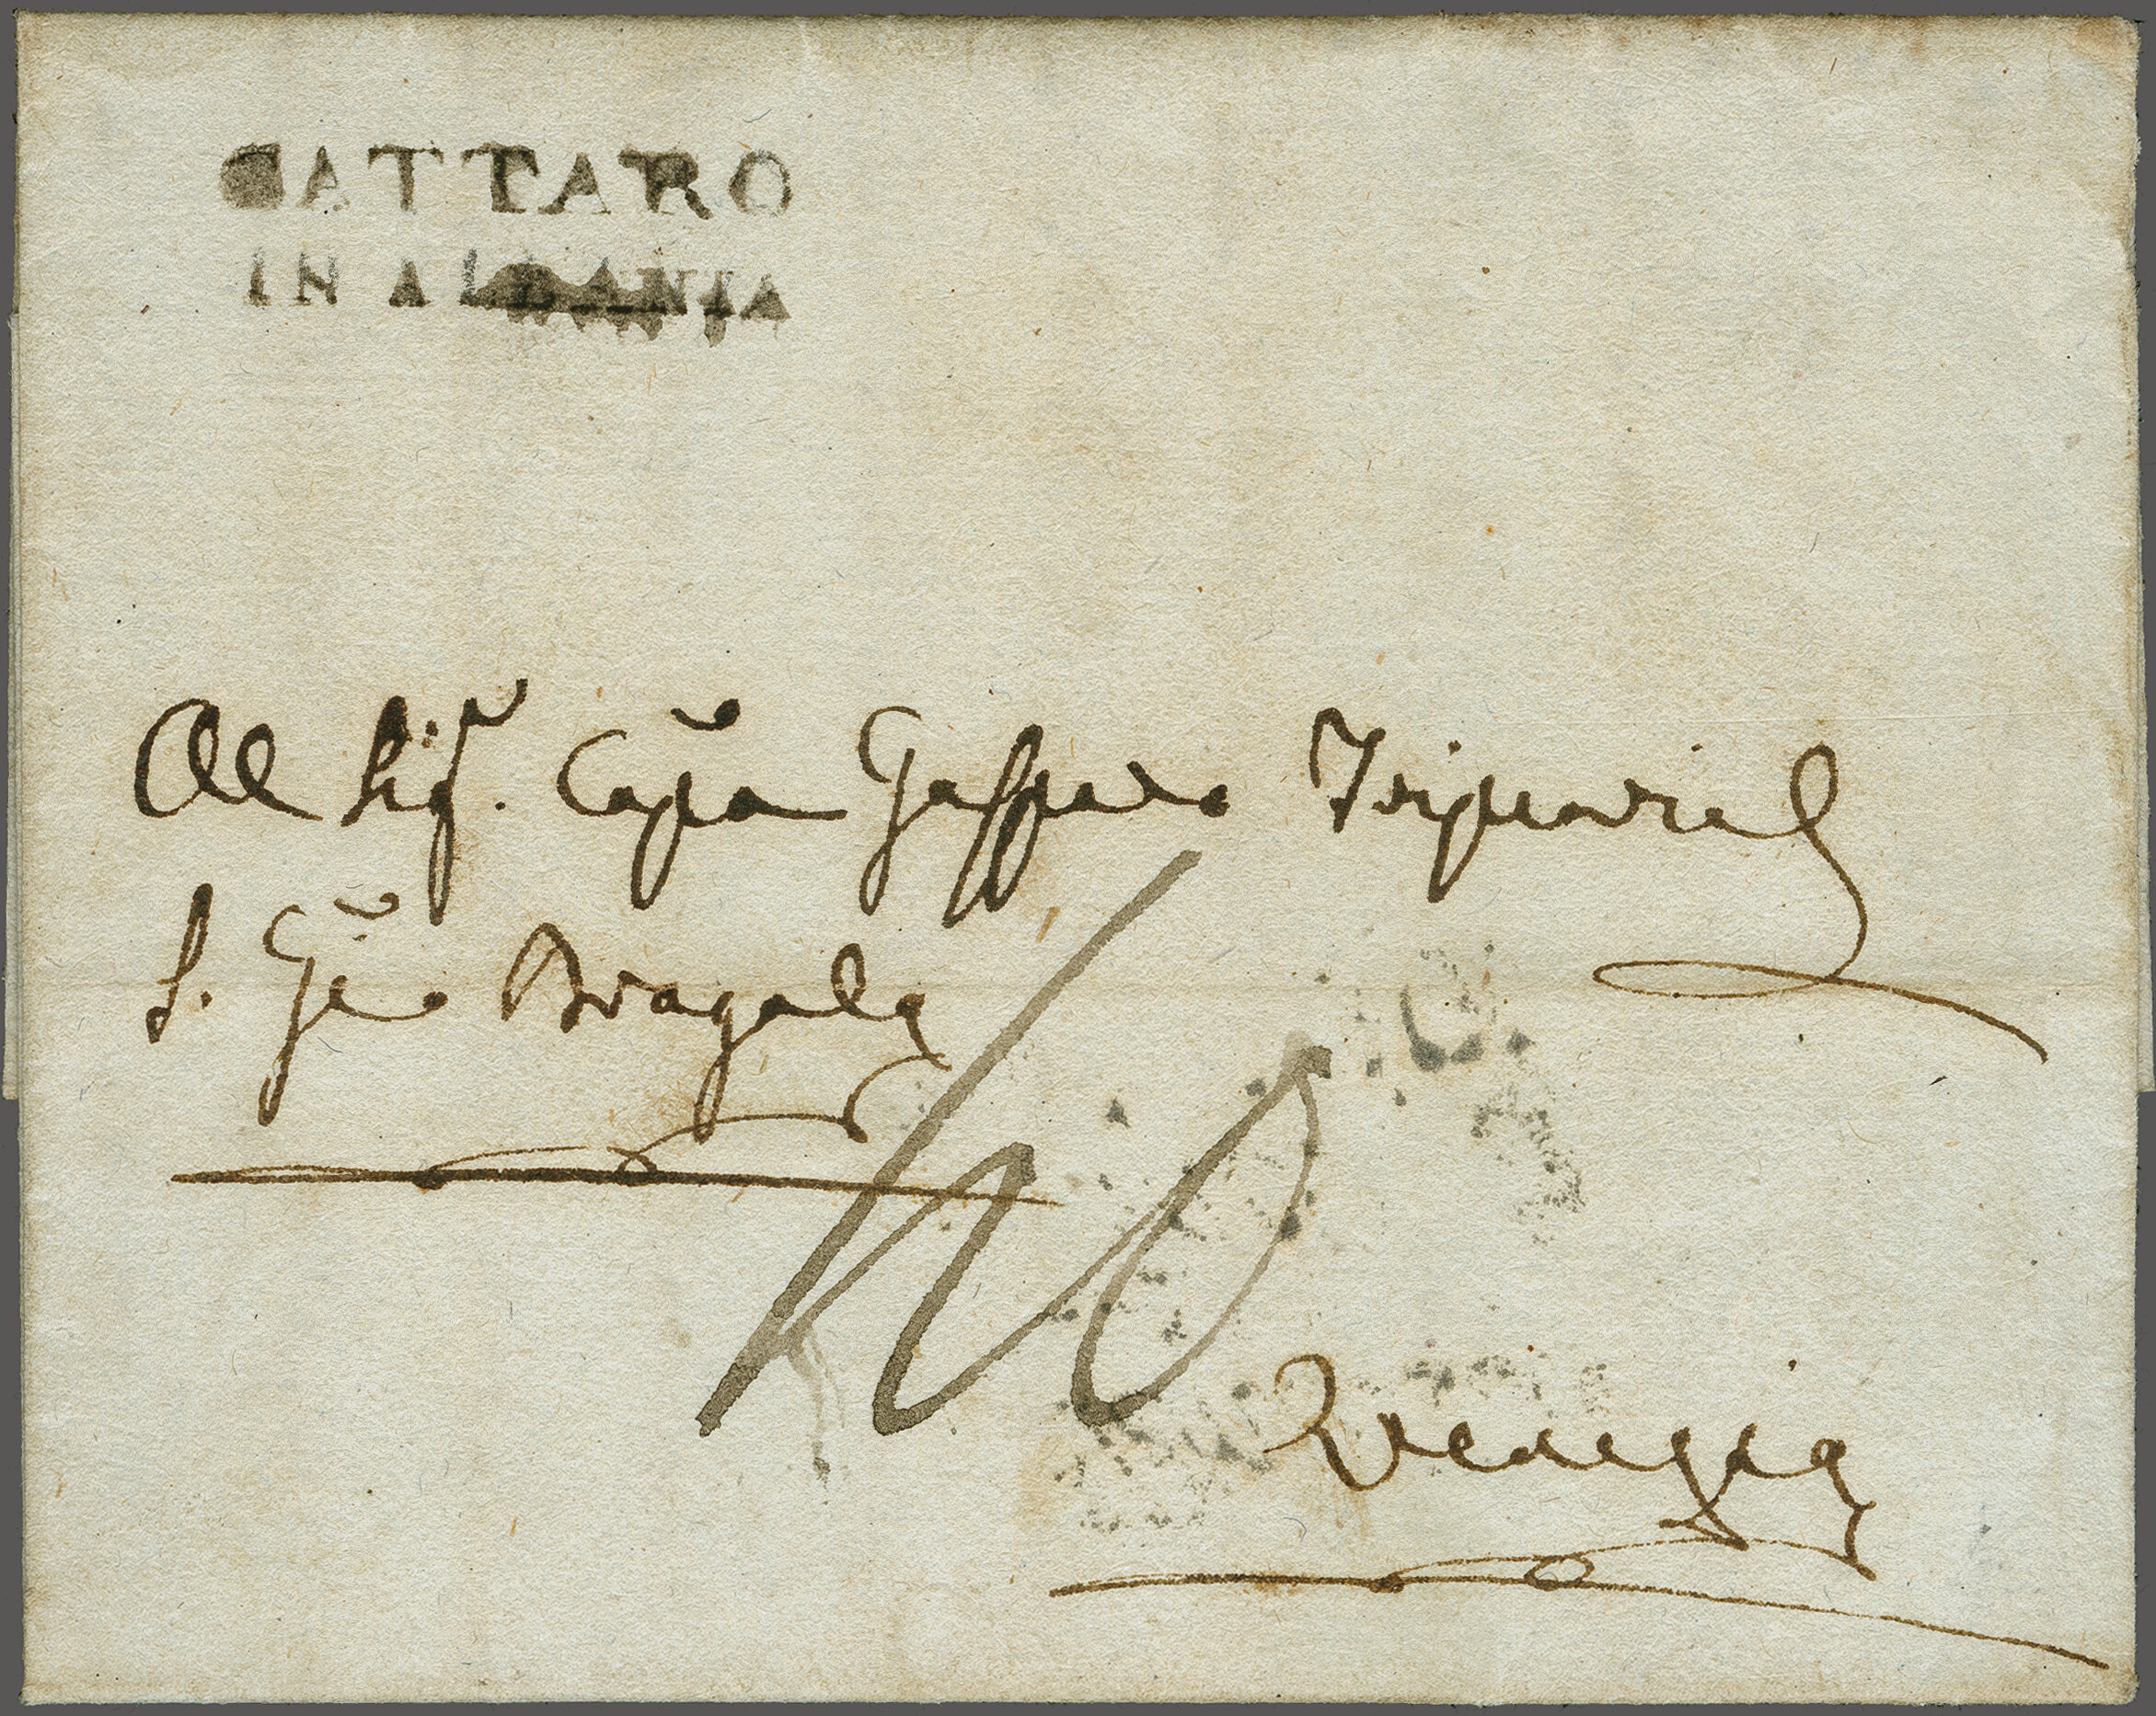 CATTARO
IN ALBANIA
Al Sigr. Capn Gasparo Tripcovich
S. Gio Bragola
10
Venezia